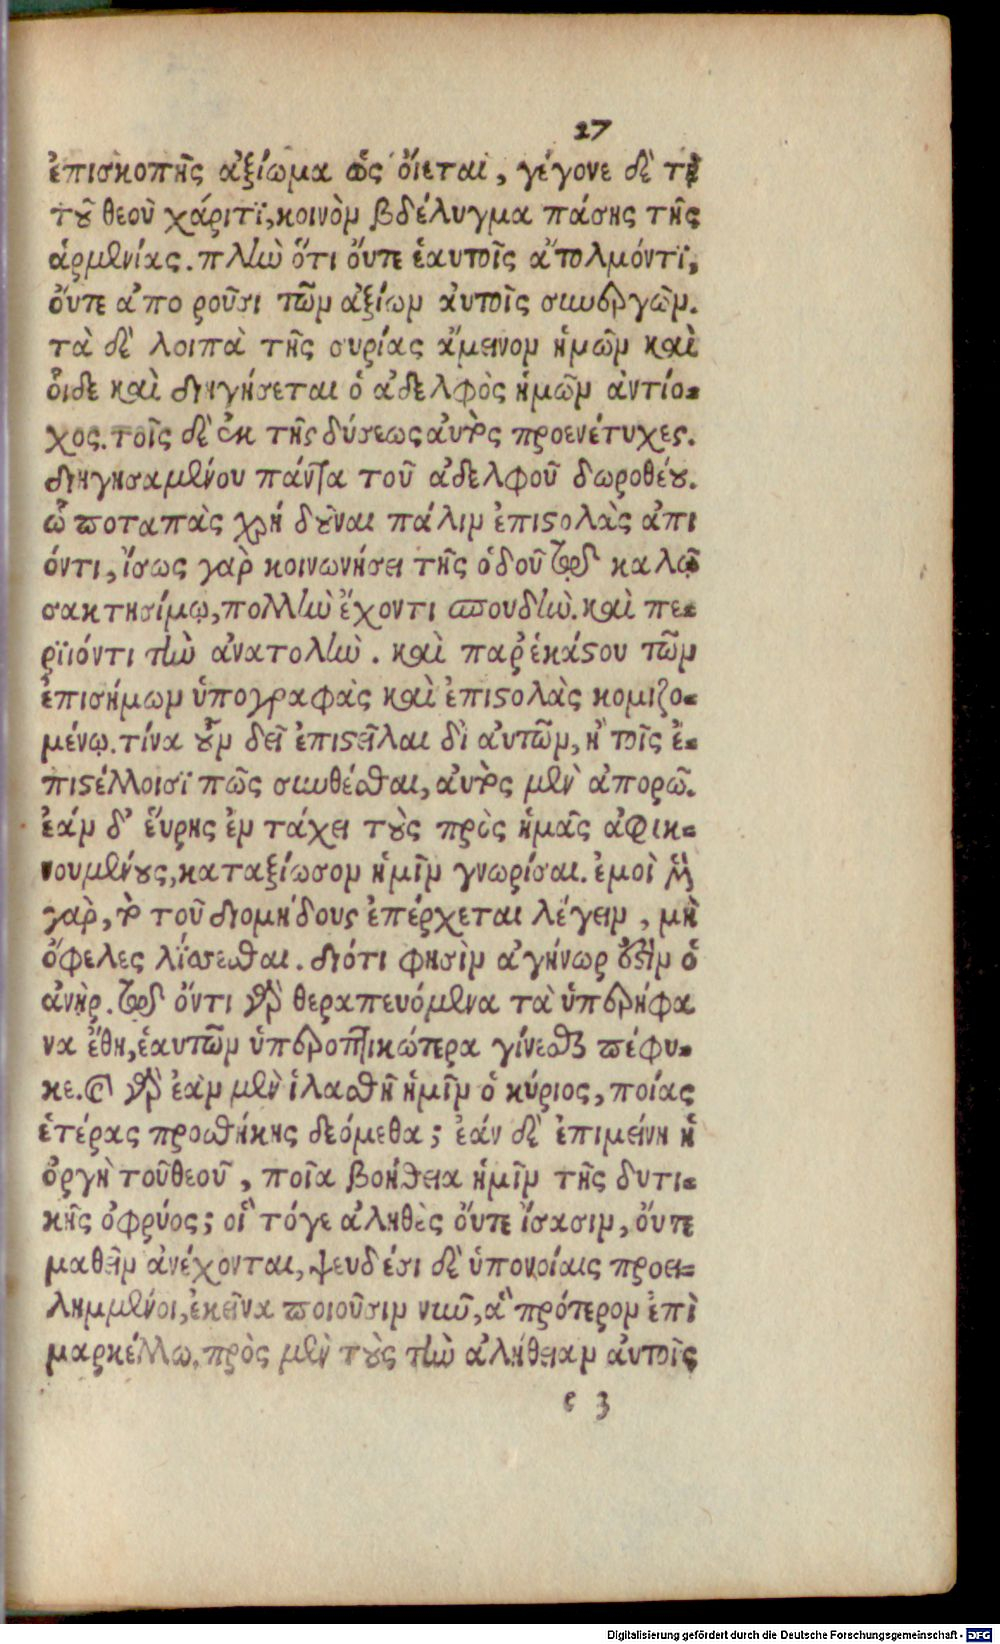 27
ἐπισκοπῆς ἀξίωμα ὡς ὄιεται, γέγονε δὲ τῇ
τοῦ θεοῦ χάριτϊ, κοινὸν βδέλυγμα πάσης τῆς
ἀρμενίας. πλὴν ὅτι ὄυτε ἑαυτοῖς ἀτολμόντϊ,
ὄυτε ἀπο ροῦσι τῶν ἀξίων ἀυτοῖς συνεργῶν.
τὰ δὲ λοιπὰ τῆς συρίας ἄμεινον ἡμῶν καὶ
ὅιδε καὶ διηγήσεται ὁ ἀδελφὸς ἡμῶν ἀντίο-
χος. τοῖς δὲ ἐκ τῆς δύσεως ἀυτὸς προενέτυχες.
διηγησαμένου πάντα τοῦ ἀδελφοῦ δωροθέου.
ᾧ ποταπὰς χρὴ δοῦναι πάλιν ἐπιστολὰς ἀπι
όντι, ἴσως γὰρ κοινωνήσει τῆς ὁδοῦ τῷ καλῷ
σακτησίμῳ, πολλὴν ἔχοντι σπουδὴν. καὶ πε-
ρϊιόντι τὴν ἀνατολὴν. καὶ παρ' ἑκάστου τῶν
ἐπισήμων ὑπογραφὰς καὶ ἐπιστολὰς κομιζο-
μένῳ. τίνα οὖν δεῖ ἐπιστεῖλαι δι ἀυτῶν, ἢ τοῖς ἐ-
πιστέλλουσϊ πῶς συνθέσθαι, ἀυτὸς μὲν ἀπορῶ.
ἐάν δ' ἕυρῃς ἐν τάχει τοὺς πρὸς ἡμᾶς ἀφικ-
νουμένους, καταξίωσον ἡμῖν γνωρίσαι. ἐμοὶ μὲν
γὰρ, τὸ τοῦ διομήδους ἐπέρχεται λέγειν, μὴ
ὄφελες λίσσεσθαι. διότι φησὶν ἀγήνωρ ἐστὶν ὁ
ἀνὴρ. τῷ ὄντι γὰρ θεραπευόμενα τὰ ὑπερήφα
να ἔθη, ἑαυτῶν ὑπεροπτικώτερα γίνεσθαι πέφυ-
κε. καὶ γὰρ ἐὰν μὲν ἱλασθῇ ἡμῖν ὁ κύριος, ποίας
ἑτέρας προσθήκης δεόμεθα; ἐάν δὲ ἐπιμείνῃ ἡ
ὀργὴ τοῦ θεοῦ, ποῖα βοήθεια ἡμῖν τῆς δυτι-
κῆς ὀφρύος; οἳ τόγε ἀληθὲς ὄυτε ἴσασιν, ὄυτε
μαθεῖν ἀνέχονται, ψευδέσι δὲ ὑπονοίαις προει-
λημμένοι, ἐκεῖνα ποιοῦσιν νῦν, ἃ πρότερον ἐπὶ
μαρκέλλῳ. πρὸς μὲν τοὺς τὴν ἀλήθειαν ἀυτοῖς
e 3
Digitalisierung gefördert durch die Deutsche Forschungsgemeinschaft - DFG